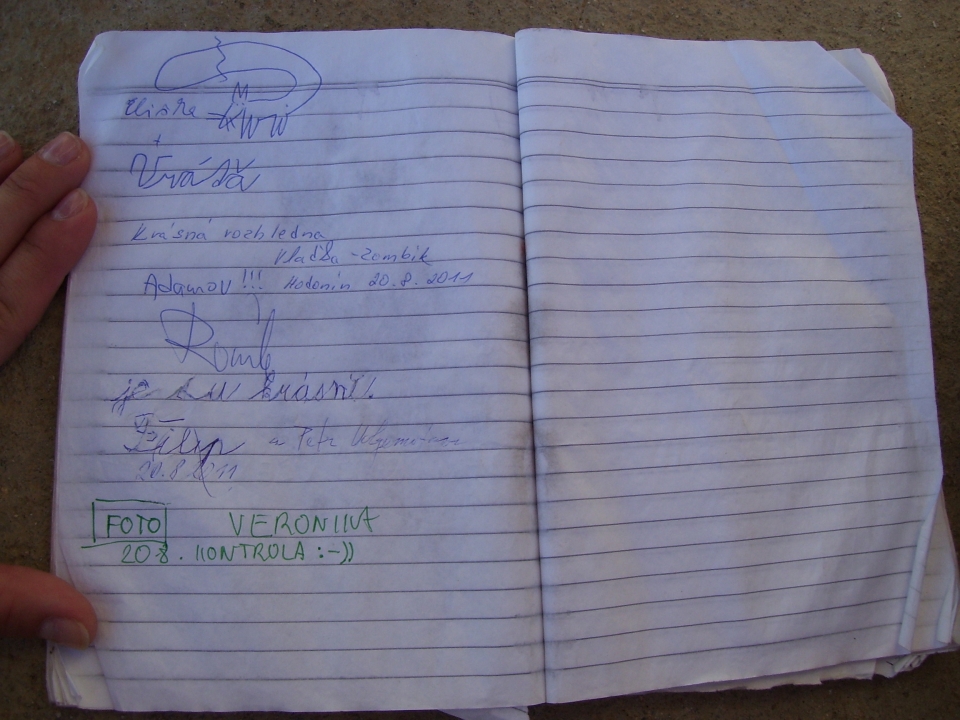 Vráťa
Krásná rozhledna
Vlaďka - Zombik
Adamov !!! Hodonín 20.8.2011
je tu krásně!
Filip a Petr
20.8.2011
FOTO VERONIKA
20.8. KONTROLA :-))